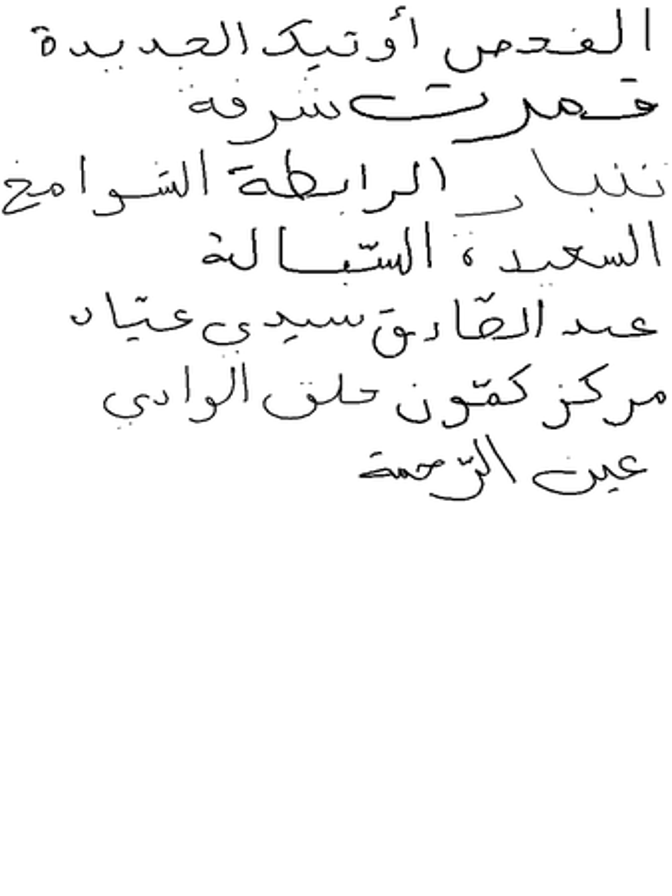 الفحص أوتيك الجديدة
قمرت شرفة
تنبار الرابطة الشوامخ
السعيدة السّبالة
عبد الصّادق سيدي عيّاد
مركز كمّون حلق الوادي
عين الرّحمة